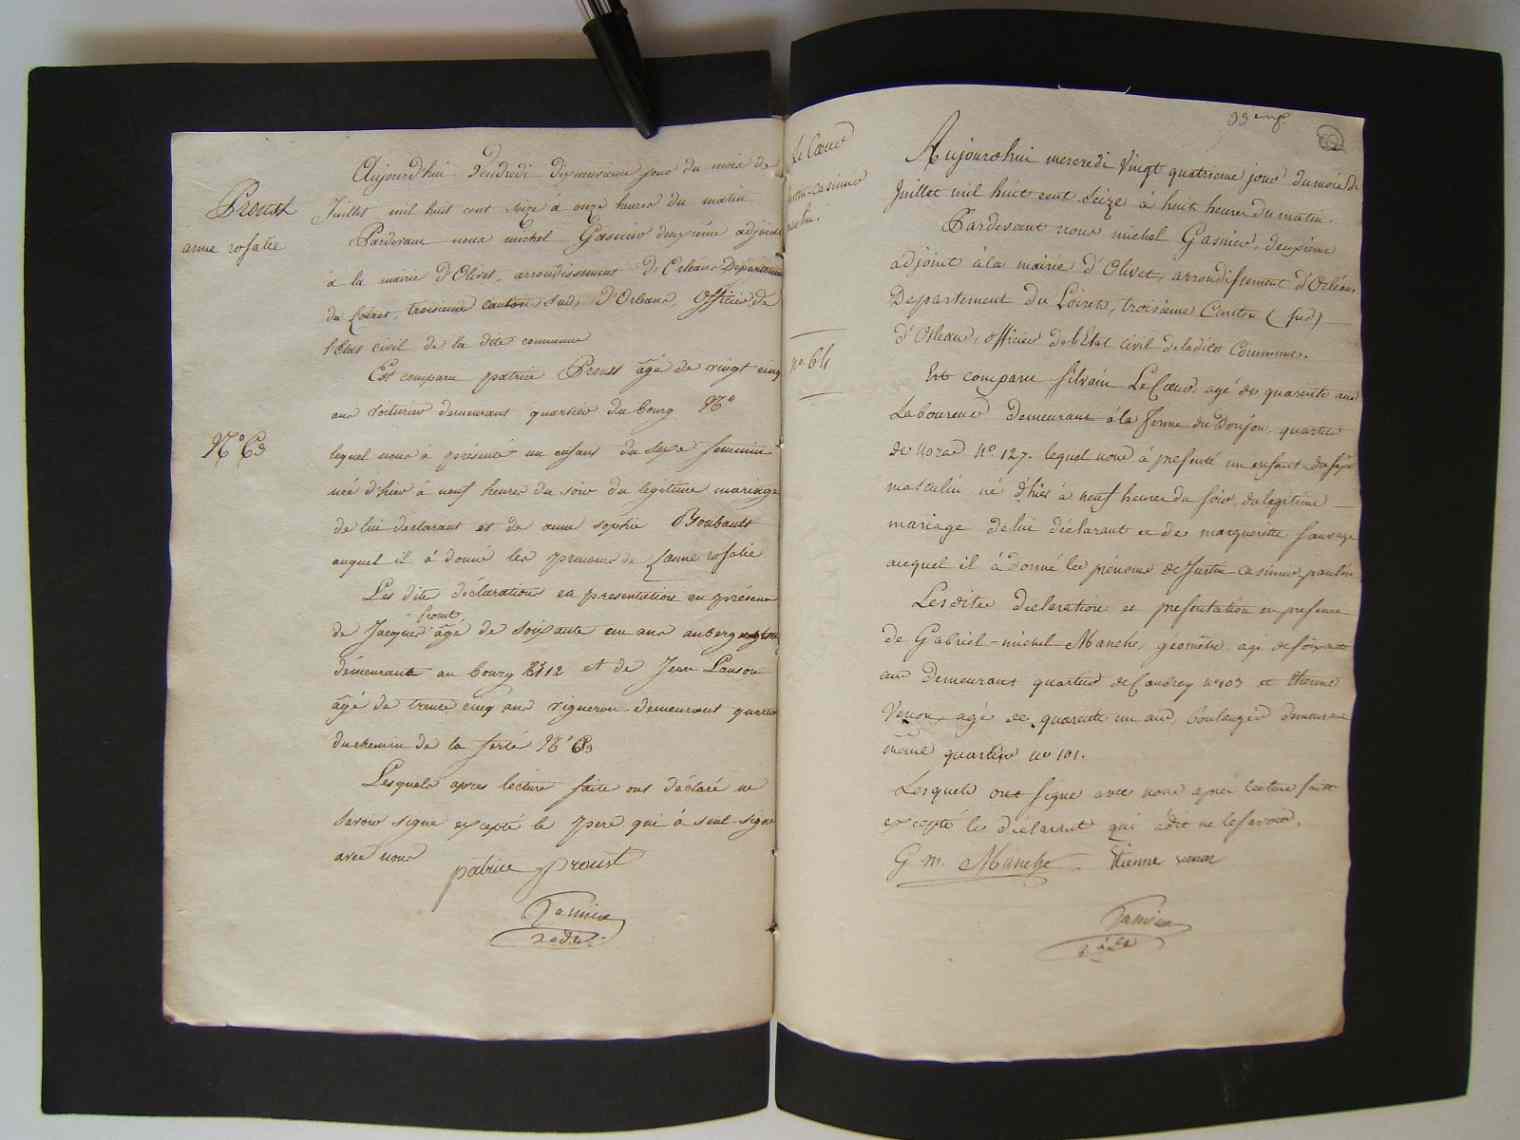 Proust
anne rosalie
N.° 63
Aujourd'hui Vendredi dix neuvieme jour du mois de
Juillet mil huit cent seize à onze heures du matin
Pardevant nous michel Gasnier deuxieme adjoint
à la mairie d'Olivet, arrondissement d'Orléans Departement
du Loiret, troisieme canton Sud, d'Orleans, Officier de
l'état civil de la dite commune
Est comparu patrice Proust âgé de vingt cinq
ans voiturier demeurant quartier du bourg N.°
lequel nous à présenté un enfant du sexe feminin
née d'hier à neuf heures du soir du legitime mariage
de lui declarant et de anne sophie Boubault
auquel il à donné les prenoms de anne rosalie
Les dite déclaration et presentation en présence
de Jacques Proust âgé de soixante un ans aubergiste
demeurant au bourg N° 12 et de Jean
âgé de trente cinq ans vigneron demeurant quartier
du chemin de la ferté N.° 63
Lesquels apres lecture faite ont déclaré ne
savoir signe excepté le pere qui à seul signe
avec nous
patrice proust
Gasnier
adj.
Le Cœur
Justin-casimir
paulin.
n.° 64
33 eme
Aujourdhui mercredi Vingt quatrieme jour du mois de
Juillet mil huit cent Seize à huit heures du matin.
Pardevant nous michel Gasnier, deuxieme
adjoint à la mairie d'Olivet, arrondissement d'Orléans
Departement du Loiret, troisieme Canton (sud)
d'Orleans, officier de l'Etat civil de ladite Commune.
Est comparu Silvain LeCœur agé de quarente ans
Laboureur demeurant à la ferme du Donjon, quartier
de N.° 127. lequel nous à presenté un enfant du sexe
masculin né d'hier à neuf heures du soir, du legitime
mariage de lui déclarant et de marguerite sauvage
auquel il à donné les prénoms de Justin casimir paulin
Lesdites declaration et presentation en presence
de Gabriel-michel Manche, géomètre agé de soixante
ans demeurant quartier de Couasnon n° 103 et Etienne
Venon agé de quarente un ans, boulanger demeurant
même quartier n° 101.
Lesquels ont signé avec nous après lecture faite
excepté le déclarant qui a dit ne le savoir.
G. m. Manche
Etienne venon
Gasnier
adj.